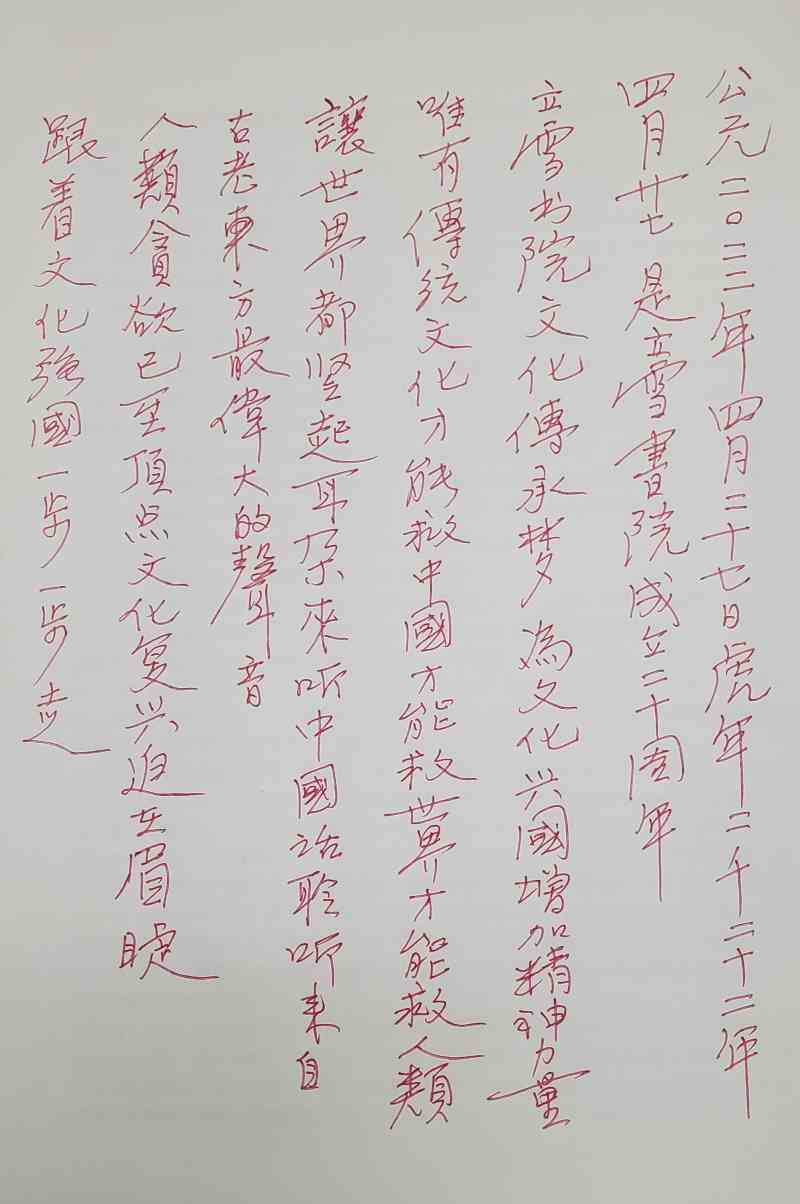 公元二〇二二年四月二十七日虎年二千二十二年
四月廿七是立雪書院成立二十周年
立雪书院文化傳承梦為文化兴國增加精神力量
唯有傳統文化才能救中國才能救世界才能救人類
讓世界都竖起耳朵來听中國话聆听来自
古老東方最偉大的聲音
人類貪欲已至頂点文化复兴迫在眉睫
跟着文化強國一步一步走